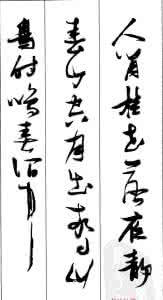 人閒桂花落夜靜
春山空月出驚山
鳥時鳴春澗中